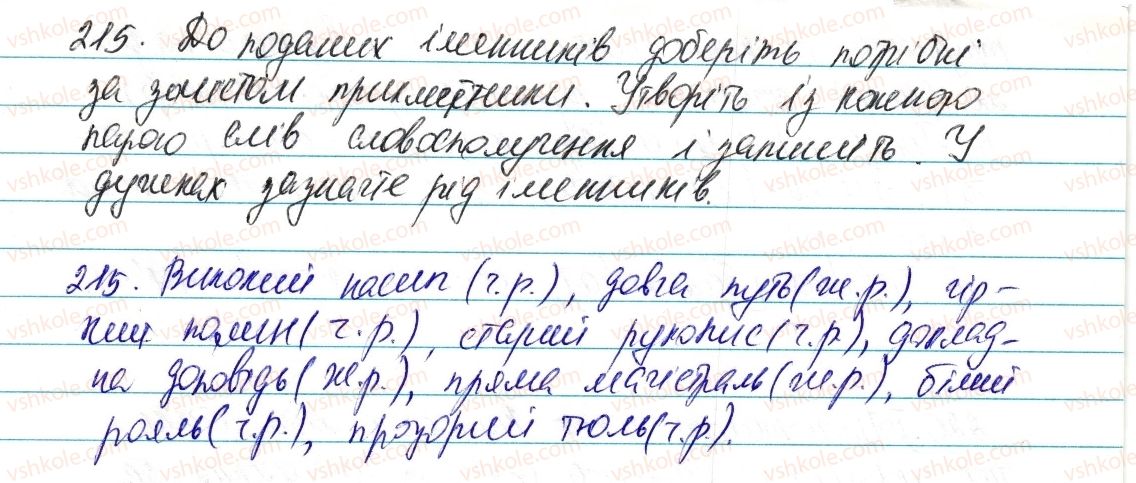 215. До поданих іменників доберіть потрібні
за змістом прикметники. Утворіть із кожного
парою слів словосполучення і запишіть. У
дужках зазначте рід іменників.
215. Високий насип (ч.р.), довга путь (ж.р.), гір-
кий полин (ч.р.), старий рукопис (ч.р.), доклад-
на доповідь (ж.р.), пряма магістраль (ж.р.), білий
рояль (ч.р.), прозорий тюль (ч.р.).